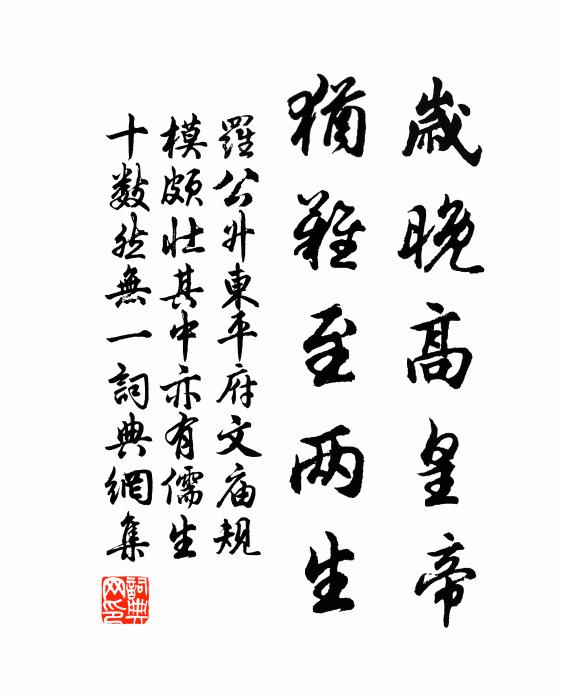 歲晚高皇帝
猶難至两生
羅公升東平府文庙規
模頗壮其中亦有儒生
十数然無一詞典網集
詞典网印